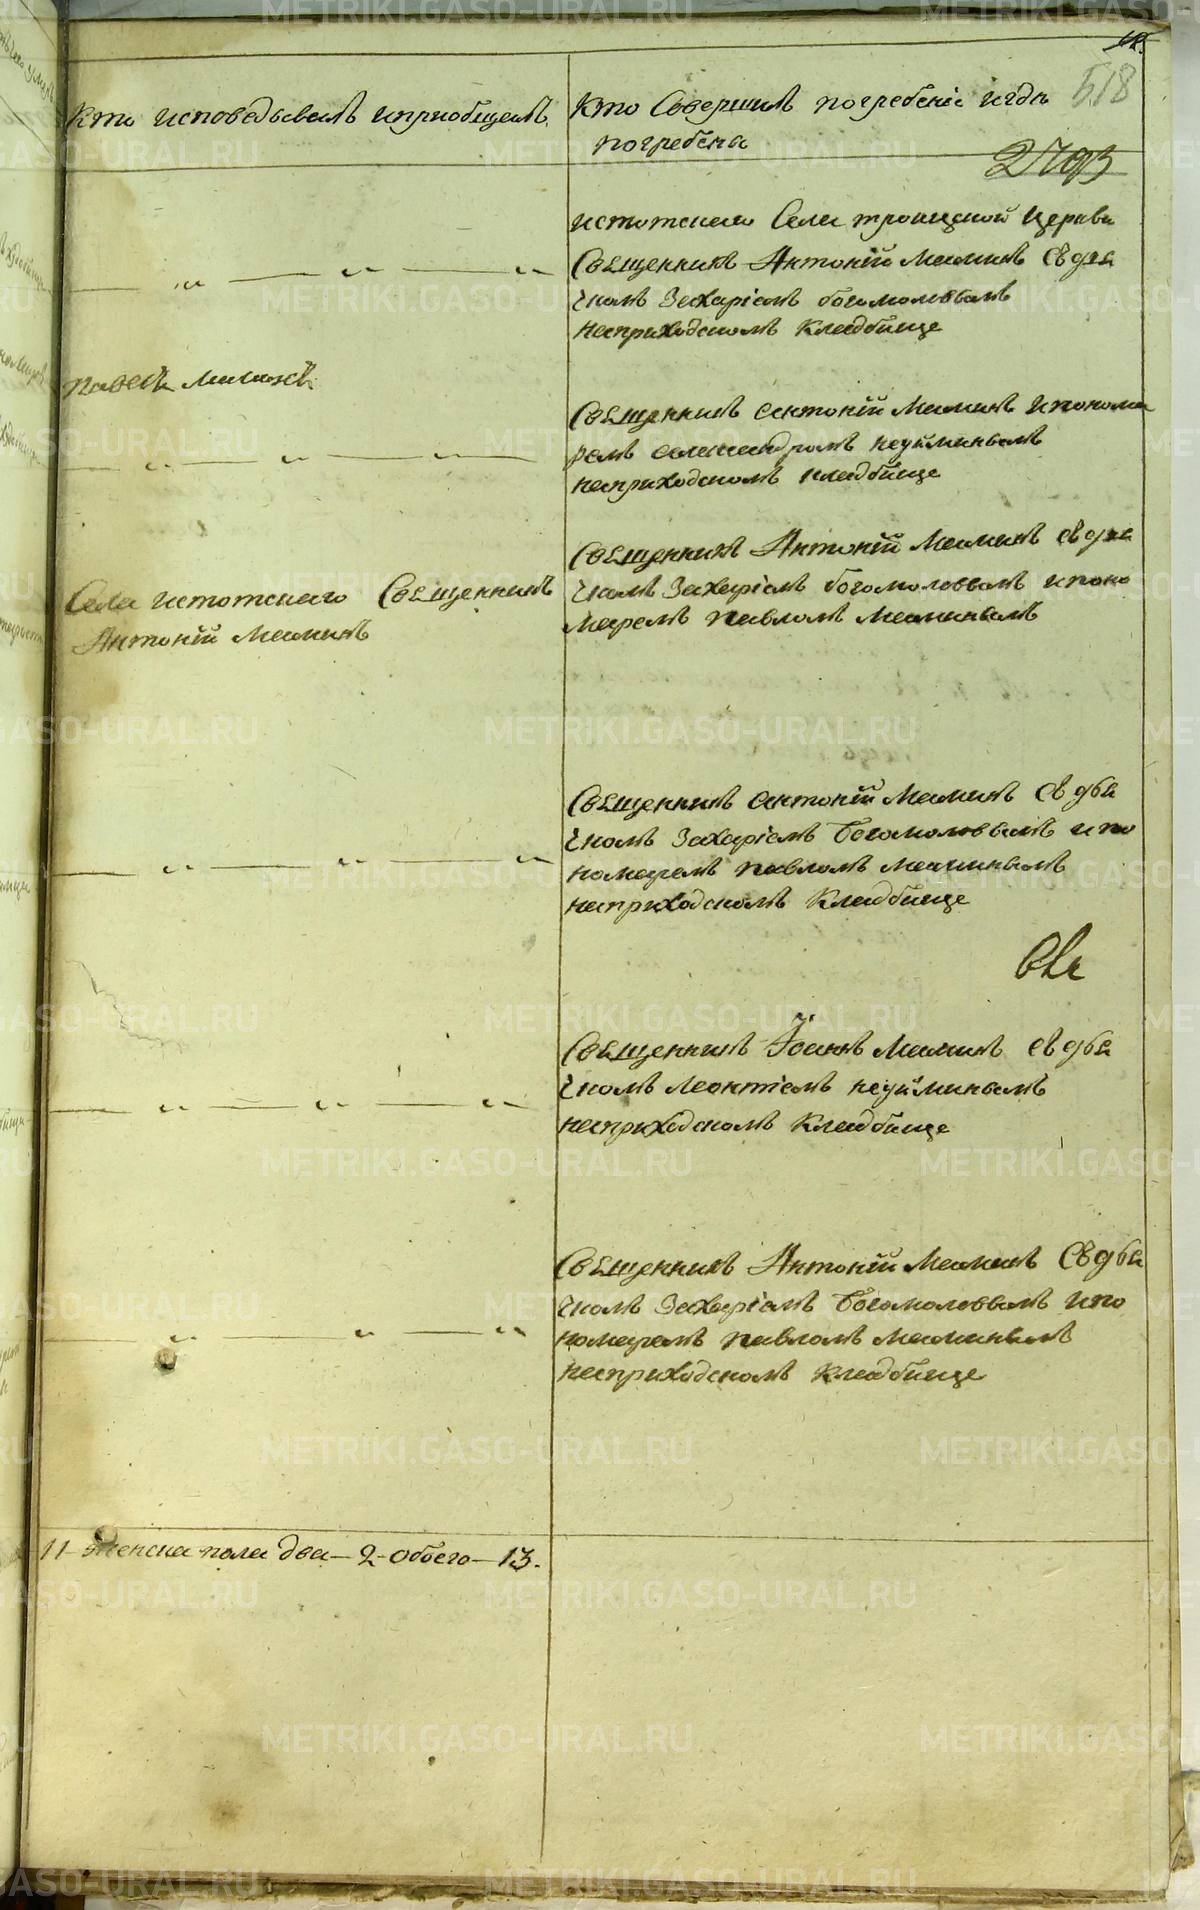 518
Кто исповѣдывалъ и приобщалъ
Кто Совершилъ погребеніе и гдѣ
погребены
истотскаго Села троицкой Церкви
Священникъ Антоній Маминъ Съ дья
чкомъ Захаріемъ богомоловымъ
на приходскомъ Кладбище
Священникъ антоній Маминъ и понома
ремъ неуйминымъ
на приходскомъ кладбище
Села истотскаго Священникъ
Антоній Маминъ
Священникъ Антоній Маминъ съ дья
чкомъ Захаріемъ богомоловымъ и поно
маремъ павломъ Маминымъ
Священникъ антоній Маминъ Съ дья
чкомъ Захаріемъ Богомоловымъ и по
номаремъ павломъ Маминымъ
на приходскомъ Кладбище
Священникъ Іоанъ Маминъ съ дья
чкомъ леонтіемъ неуйминымъ
на приходскомъ Кладбище
Священникъ Антоній Маминъ Съ дья
чкомъ Захаріемъ Богомоловымъ и по
номаремъ павломъ Маминымъ
на приходскомъ кладбище
11 – женска пола два – 2 – обоего – 13.
METRIKI.GASO-URAL.RU